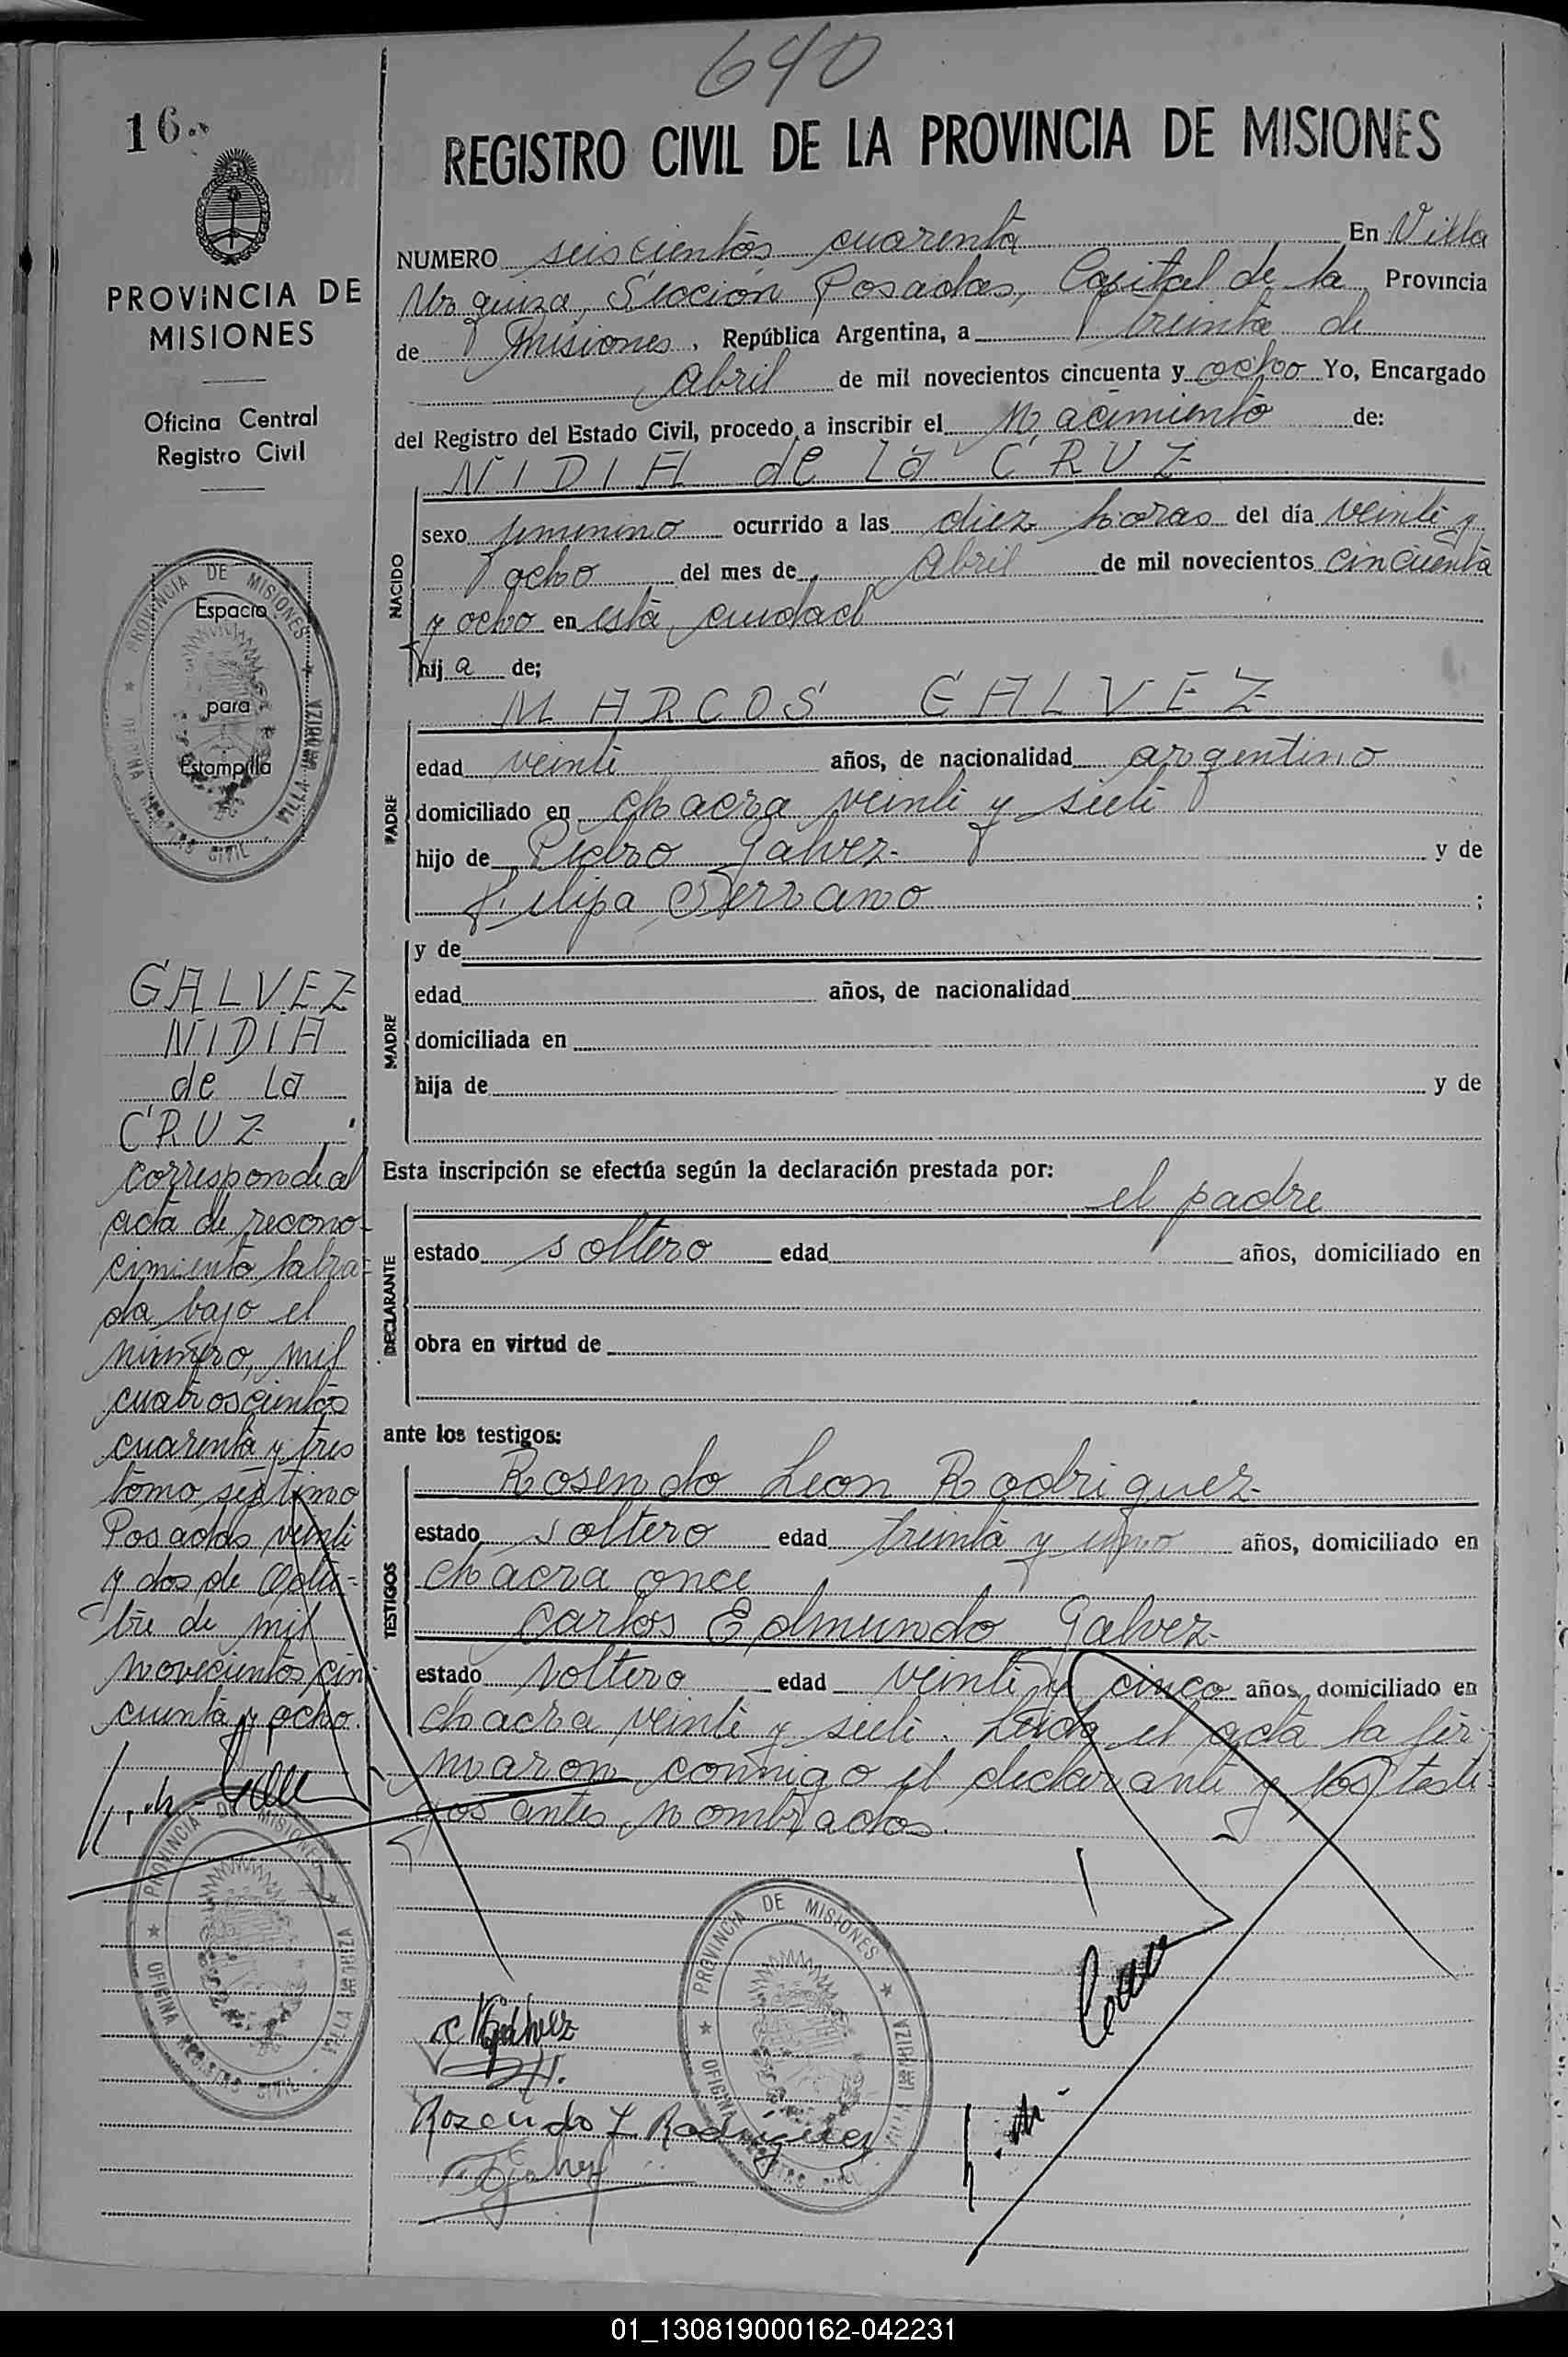 640
16
REGISTRO CIVIL DE LA PROVINCIA DE MISIONES
PROVINCIA DE
MISIONES
Oficina Central
Registro Civil
PROVINCIA DE MISIONES
OFICINA REGISTRO CIVIL
VILLA URQUIZA
Espacio
para
Estampilla
GALVEZ
NIDIA
de La
CRUZ
correspondeal
acta de recono-
cimiento labra-
da bajo el
número, mil
cuatroscientos
cuarenta y tres
tomo séptimo
Posadas veinti
y dos de Octu-
bre de mil
novecientos cin
cuenta y ocho.
PROVINCIA DE MISIONES
OFICINA REGISTRO CIVIL
VILLA URQUIZA
NUMERO seiscientos cuarenta En Villa
Urquiza, Sección Posadas, Capital de la Provincia
de Misiones, República Argentina, a treinta de
Abril de mil novecientos cincuenta y ocho Yo, Encargado
del Registro del Estado Civil, procedo a inscribir el Nacimiento de:
NIDIA de La CRUZ
NACIDO
sexo femenino ocurrido a las diez horas del día veinti y
ocho del mes de Abril de mil novecientos cincuenta
y ocho en esta ciudad
hija de;
MARCOS GALVEZ
PADRE
edad veinte años, de nacionalidad argentino
domiciliado en chacra veinti y siete
hijo de Pedro Galvez y de
Felipa Serrano ;
MADRE
y de
edad años, de nacionalidad
domiciliada en
hija de y de
Esta inscripción se efectúa según la declaración prestada por:
el padre
DECLARANTE
estado soltero edad años, domiciliado en
obra en virtud de
ante los testigos:
TESTIGOS
Rosendo Leon Rodriguez
estado soltero edad treinta y uno años, domiciliado en
chacra once
Carlos Edmundo Galvez
estado soltero edad veinti y cinco años, domiciliado en
chacra veinti y siete. Leida el acta la fir-
maron conmigo el declarante y los testi-
gos antes nombrados.
PROVINCIA DE MISIONES
OFICINA REGISTRO CIVIL
VILLA URQUIZA
Galvez
Rozendo L Rodriguez
01_130819000162-042231